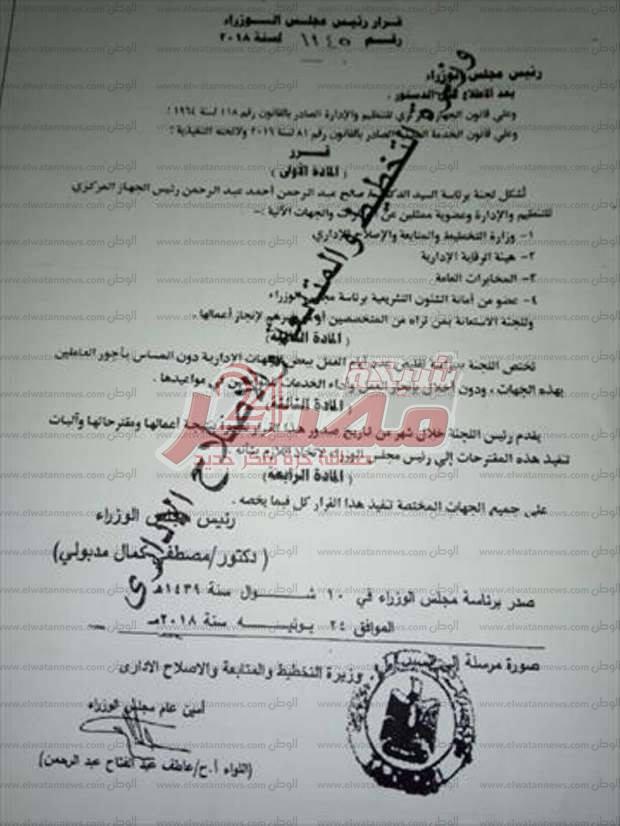 قرار رئيس مجلس الوزراء
رقم ١١٤٥ لسنة ٢٠١٨
رئيس مجلس الوزراء
بعد الاطلاع على الدستور ،
وعلى قانون الجهاز المركزي للتنظيم والإدارة الصادر بالقانون رقم ١١٨ لسنة ١٩٦٤ ؛
وعلى قانون الخدمة الصادر بالقانون رقم ٨١ لسنة ٢٠١٦ ولائحته التنفيذية ؛
قرر
( المادة الأولى )
تشكل لجنة برئاسة السيد الدكتور صالح عبد الرحمن أحمد عبد الرحمن رئيس الجهاز المركزي
للتنظيم والإدارة وعضوية ممثلين عن والجهات الآتية :-
١- وزارة التخطيط والمتابعة والإصلاح الإداري
٢- هيئة الرقابة الإدارية
٣- المخابرات العامة
٤- عضو من أمانة الشئون التشريعية برئاسة مجلس الوزراء
وللجنة الاستعانة بمن تراه من المتخصصين أو غيرهم لإنجاز أعمالها .
(المادة الثانية)
تختص اللجنة تقليص أيام العمل ببعض الجهات الإدارية دون المساس بأجور العاملين
بهذه الجهات ، ودون العمل وأداء الخدمات في مواعيدها .
(المادة الثالثة)
يقدم رئيس اللجنة خلال شهر من تاريخ صدور هذا القرار بنتيجة أعمالها ومقترحاتها وآليات
تنفيذ هذه المقترحات إلى رئيس مجلس الوزراء لاتخاذ اللازم بشأنه .
(المادة الرابعة)
على جميع الجهات المختصة تنفيذ هذا القرار كل فيما يخصه .
رئيس مجلس الوزراء
( دكتور/مصطفى كمال مدبولي)
صدر برئاسة مجلس الوزراء في ١٠ شوال سنة ١٤٣٩هـ
الموافق ٢٤ يونيه سنة ٢٠١٨مـ
صورة مرسلة إلى السيد وزيرة التخطيط والمتابعة والاصلاح الادارى
أمين عام مجلس الوزراء
(اللواء أ.ح/عاطف عبد الفتاح عبد الرحمن)
وزارة التخطيط والمتابعة والإصلاح الإداري
شبكة
مصر 24
الوطن www.elwatannews.com